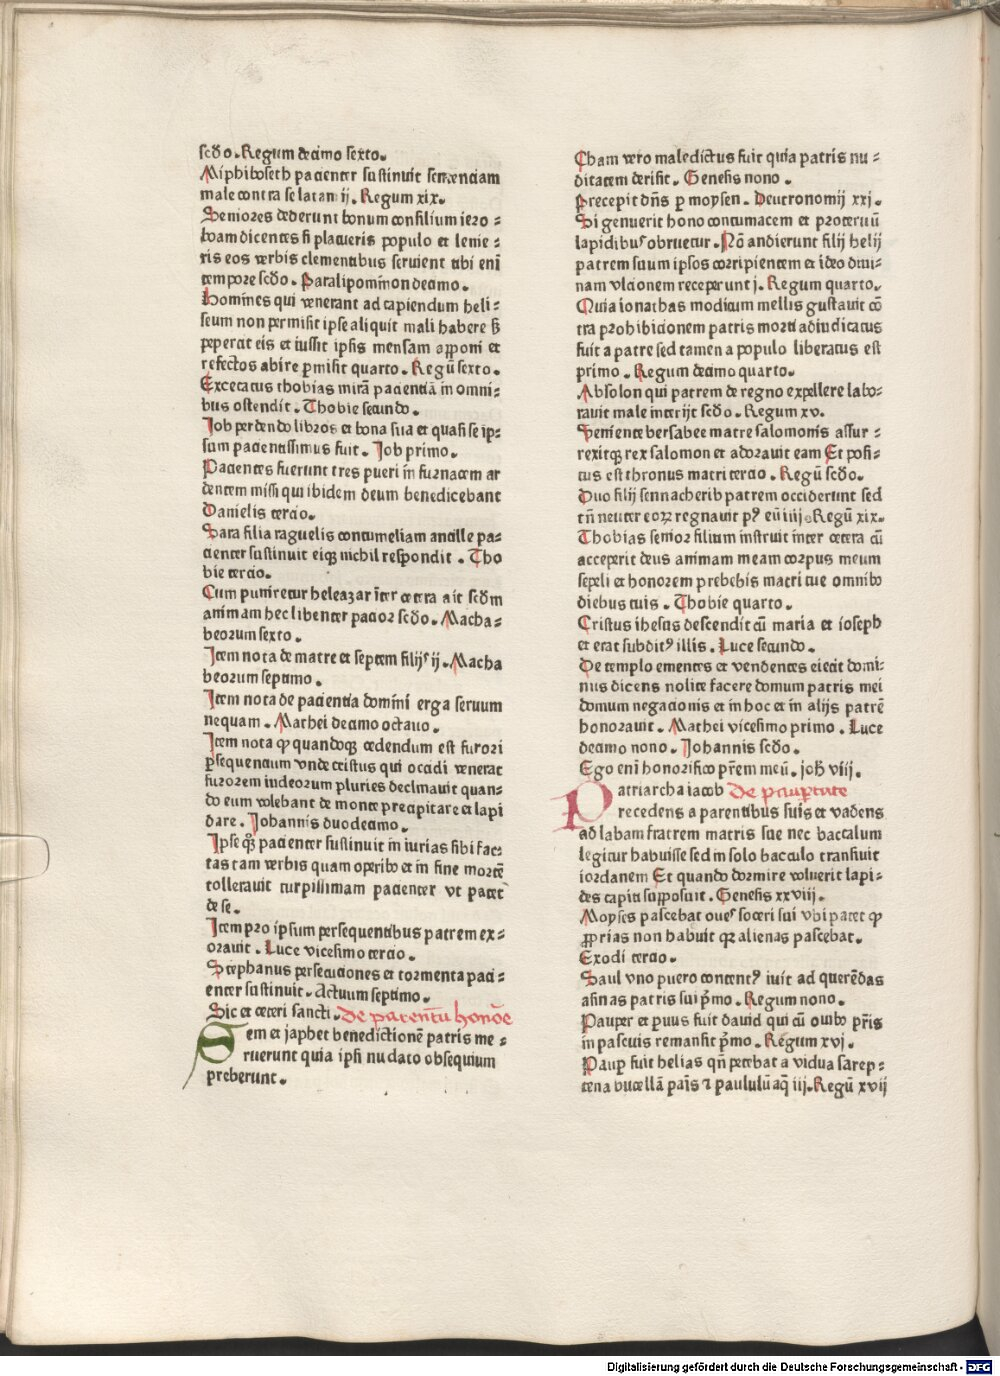 scďo. Regum decimo sexto.
Miphiboseth pacienter sustinuit sentenciam
male contra se latam ij. Regum xix.
Seniores dederunt bonum consilium iero⸗
boam dicentes si placueris populo et lenie⸗
ris eos verbis clementibus seruient tibi eni̅
tempore scďo. Paralipominon decimo.
Homines qui venerant ad capiendum heli⸗
seum non permisit ipse aliquit mali habere sʒ
peperat eis et iussit ipsis mensam apponi et
refectos abire ꝑmisit quarto. Regū sexto.
Excecatus thobias mirā paciencīā in omni⸗
bus ostendit. Thobie secundo.
Job perdendo libros et bona sua et quasi se ip⸗
sum pacientissimus fuit. Job primo.
Pacientes fuerunt tres pueri in furnacem ar
dentem missi qui ibidem deum benedicebant
Danielis tercio.
Sara filia raguelis contumeliam ancille pa⸗
cienter sustinuit eiqʒ nichil respondit. Tho
bie tercio.
Cum puniretur heleazar īter cetera ait scďm
animam hec libenter pacior scďo. Macha⸗
beorum sexto.
Item nota de matre et septem filijs ij. Macha
beorum septimo.
Item nota de pacientia domini erga seruum
nequam. Mathei decimo octauo.
Item nota ꝙ quandoqʒ cedendum est furori
ꝑsequencium vnde cristus qui occidi venerat
furorem iudeorum pluries declinauit quan⸗
do eum volebant de monte precipitare et lapi
dare. Johannis duodecimo.
Ipse qʒ pacienter sustinuit in iurias sibi fac⸗
tas tam verbis quam operibꝰ et in fine mortē
tollerauit turpissimam pacienter vt patet
de se.
Item pro ipsum persequentibus patrem ex⸗
orauit. Luce vicesimo tercio.
Stephanus persecuciones et tormenta paci⸗
enter sustinuit. Actuum septimo.
Sic et ceteri sancti. De parentū honōe
Sem et japhet benedictionē patris me⸗
ruerunt quia ipsi nudato obsequium
preberunt.
Cham vero maledictus fuit quia patris nu⸗
ditatem derisit. Genesis nono.
Precepit dn̄s ꝑ moysen. Deutronomij xxj.
Si genuerit homo contumacem et proteruū
lapidibus obruetur. Nō audierunt filij helij
patrem suum ipsos corripientem et ideo diui⸗
nam vlcionem receperunt j. Regum quarto.
Quia ionathas modicum mellis gustauit cō
tra prohibicionem patris morti adiudicatus
fuit a patre sed tamen a populo liberatus est
primo. Regum decimo quarto.
Absolon qui patrem de regno expellere labo⸗
rauit male interijt scďo. Regum xv.
Veniente bersabee matre salomonis assur⸗
rexitqʒ rex salomon et adorauit eam Et posi⸗
tus est thronus matri tercio. Regū scďo.
Duo filij sennacherib patrem occiderunt sed
tn̄ neuter eoꝝ regnauit pꝰ eū iiij. Regū xix.
Thobias senior filium instruit inter cetera cū
acceperit deus animam meam corpus meum
sepeli et honorem prebebis matri tue omnibꝰ
diebus tuis. Thobie quarto.
Cristus ihesus descendit cū maria et ioseph
et erat subditꝰ illis. Luce secundo.
De templo ementes et vendentes eiecit domi⸗
nus dicens nolite facere domum patris mei
domum negacionis et in hoc et in alijs patrē
honorauit. Mathei vicesimo primo. Luce
decimo nono. Johannis scďo.
Ego eni̅ honorifico pr̄em meū. joh̄ viij.
Patriarcha iacob De paupertate
recedens a parentibus suis et vadens
ad labam fratrem matris sue nec baculum
legitur habuisse sed in solo bacculo transiuit
iordanem Et quando dormire voluerit lapi⸗
des capiti supposuit. Genesis xxviii.
Moyses pascebat oues soceri sui vbi patet ꝙ
ꝓprias non habuit qʒ alienas pascebat.
Exodi tercio.
Saul vno puero contentꝰ iuit ad querēdas
asinas patris sui pͥmo. Regum nono.
Pauper et ꝑuus fuit dauid qui cū ouibꝰ pr̄is
in pascuis remansit pͥmo. Regum xvj.
Pauꝑ fuit helias qn̄ petebat a vidua sarep⸗
tena bucellā pais̄ ⁊ paululū aq̄ iij. Regū xvij
Digitalisierung gefördert durch die Deutsche Forschungsgemeinschaft - DFG